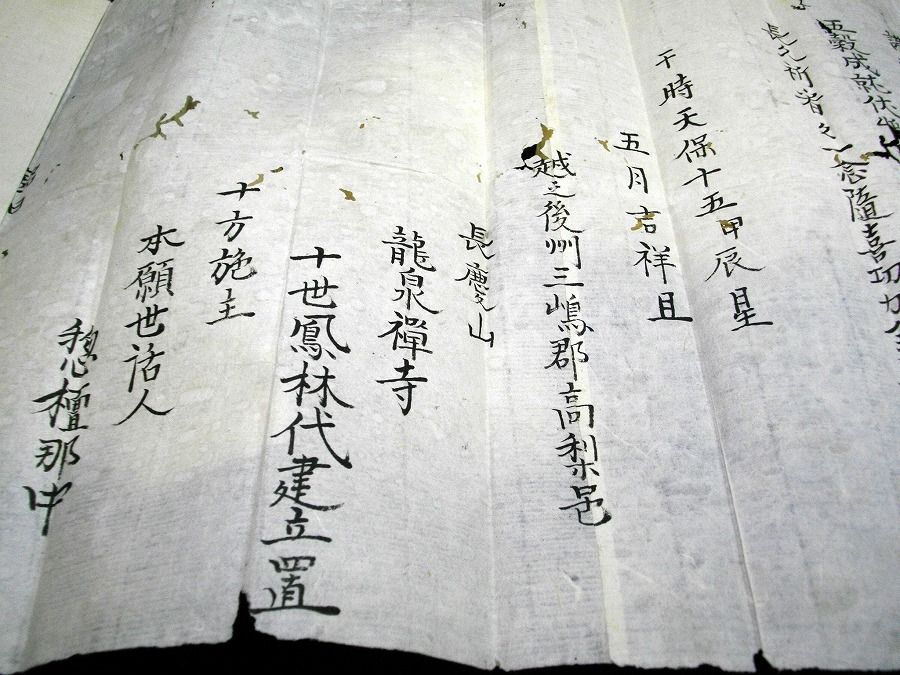 五穀成就
念隨喜功力
干時天保十五甲辰星
五月吉祥且
越之後州三嶋郡高梨邑
長慶山
龍泉禪寺
十世鳳林代建立置
十方施主
本願世話人
惣檀那中